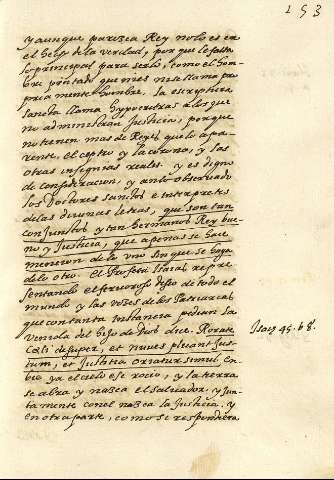 153
y aunque parezca Rey nolo es en
el ser y de la verdad, por que le falta
lo principal para serlo, como el hom-
bre pintado que ni es ni se llama pro
pria mente hombre. la escriptura
sancta llama hyppocritas a los que
no administran Justicia, porque
no tienen mas de Reyes que lo apa-
rente, el ceptro y la corona, y las
otras insignias reales. y es digno
de consideracion, y anlo observado
los Doctores sanctos e interpretes
delas divinas letras, que son tan
conjuntos y tan hermanos Rey bue-
no y Justicia, que apenas se hace
mencion de lo uno sin que se haga
de lo otro. El Profeta Isaias repre
sentando el fervoroso deseo de todo el
mundo y las vozes de los Patriarcas
que con tanta instancia pedian la
venida del hijo de Dios dice. Rorate
Cœli desuper, et nuves pluant Jus-
tum, et Justitia oriatur simul. en-
bie ya el cielo ese rocio, y la tierra
se abra y nazca el salvador, y Jun-
tamente con el nazca la Justicia. y
en otra parte, como se respondiera
Isay 45. 68.